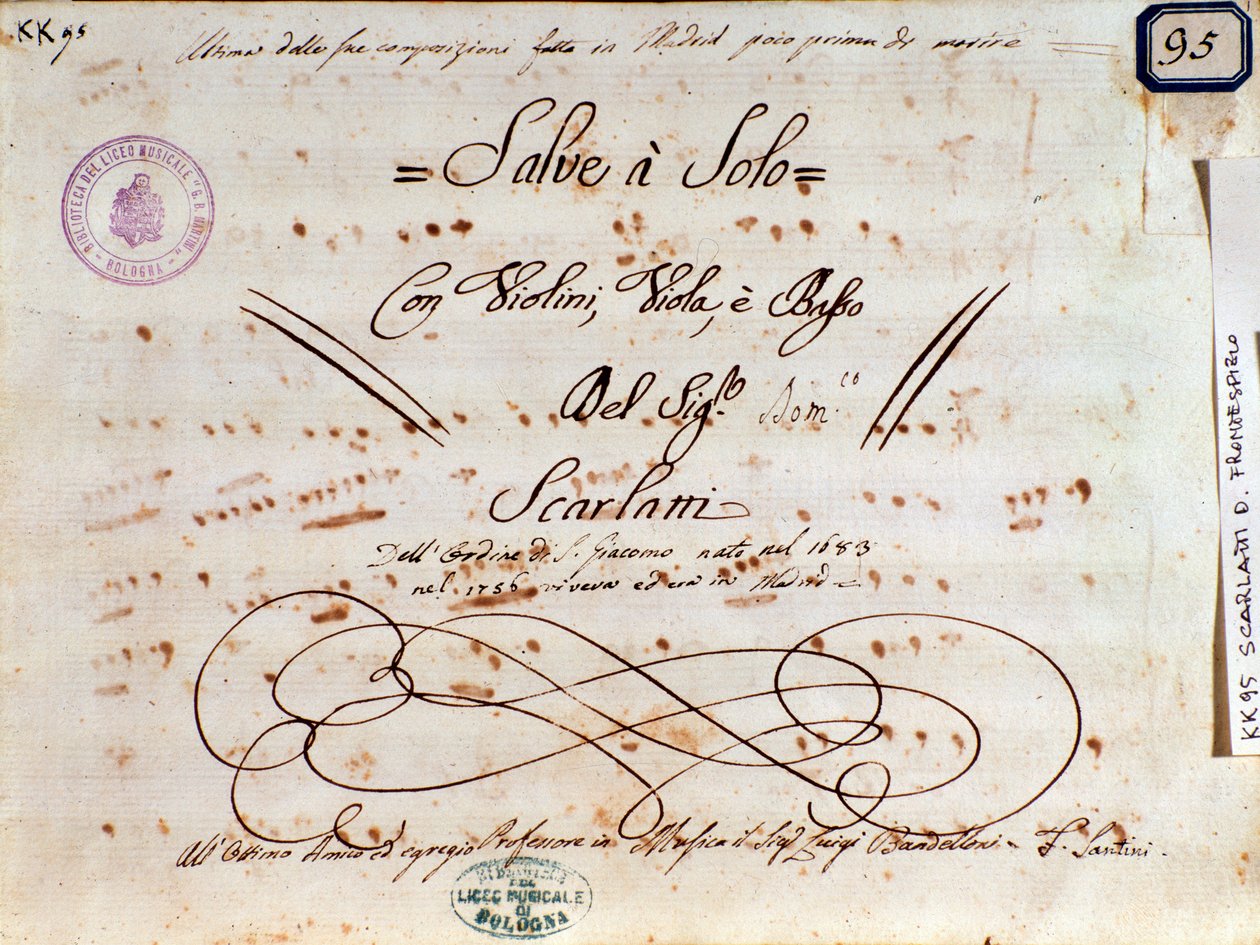 KK 95
95
Ultima delle sue composizioni fatta in Madrid poco prima di morire
= Salve à Solo =
BIBLIOTECA DEL LICEO MUSICALE "G. B. MARTINI" - BOLOGNA -
Con Violini, Viola, è Basso
Del Sig.ʳ Dom.ᶜᵒ
Scarlatti
Dell' Ordine di S. Giacomo nato nel 1683
nel 1756 viveva ed era in Madrid
All' Ottimo Amico ed egregio Professore in Musica il Sigʳ Luigi Bandelloni - F. Santini -
DEL
LICEO MUSICALE
DI
BOLOGNA
KK 95 SCARLATTI D. FRONTESPIZIO